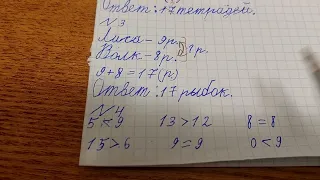 Ответ: 17 тетрадей.
№ 3
Лиса - 9 р.
Волк - 8 р.
? р.
9+8=17(р)
Ответ: 17 рыбок.
№ 4
5 < 9 13 > 12 8 = 8
15 > 6 9 = 9 0 < 9